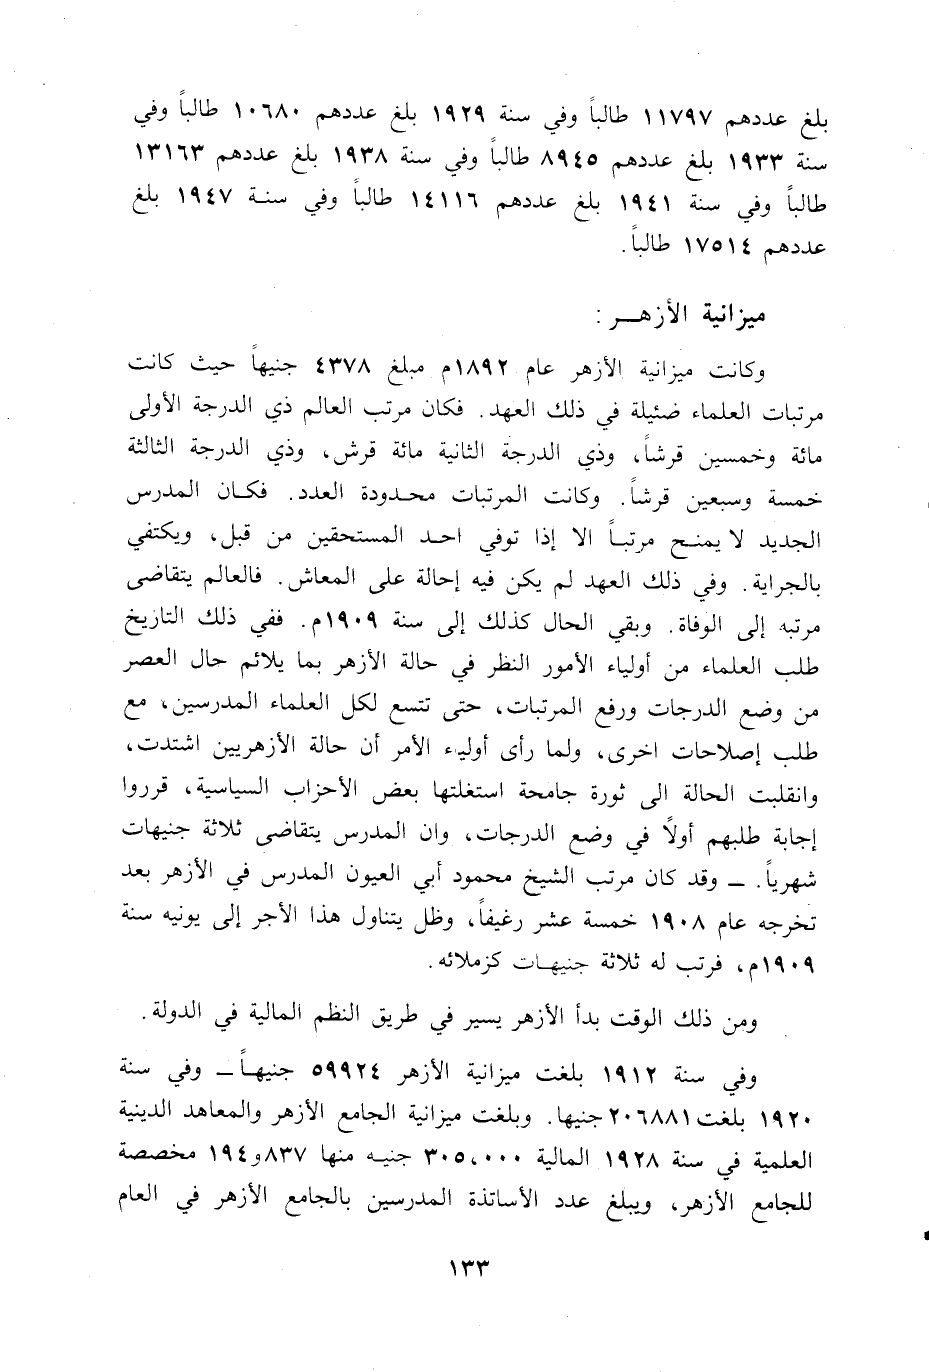 بلغ عددهم ١١٧٩٧ طالباً وفي سنة ١٩٢٩ بلغ عددهم ١٠٦٨٠ طالباً وفي
سنة ١٩٣٣ بلغ عددهم ٨٩٤٥ طالباً وفي سنة ١٩٣٨ بلغ عددهم ١٣١٦٣
طالباً وفي سنة ١٩٤١ بلغ عددهم ١٤١١٦ طالباً وفي سنـة ١٩٤٧ بلغ
عددهم ١٧٥١٤ طالباً.
ميزانية الأزهـر :
وكانت ميزانية الأزهر عام ١٨٩٢م مبلغ ٤٣٧٨ جنيهاً حيث كانت
مرتبات العلماء ضئيلة في ذلك العهد. فكان مرتب العالم ذي الدرجة الأولى
مائة وخمسين قرشاً، وذي الدرجة الثانية مائة قرش، وذي الدرجة الثالثة
خمسة وسبعين قرشاً. وكانت المرتبات محدودة العدد. فكان المدرس
الجديد لا يمنح مرتباً الا إذا توفي احد المستحقين من قبل، ويكتفي
بالجراية. وفي ذلك العهد لم يكن فيه إحالة على المعاش. فالعالم يتقاضى
مرتبه إلى الوفاة. وبقي الحال كذلك إلى سنة ١٩٠٩م. ففي ذلك التاريخ
طلب العلماء من أولياء الأمور النظر في حالة الأزهر بما يلائم حال العصر
من وضع الدرجات ورفع المرتبات، حتى تتسع لكل العلماء المدرسين، مع
طلب إصلاحات اخرى، ولما رأى أولياء الأمر أن حالة الأزهريين اشتدت،
وانقلبت الحالة الى ثورة جامحة استغلتها بعض الأحزاب السياسية، قرروا
إجابة طلبهم أولاً في وضع الدرجات، وان المدرس يتقاضى ثلاثة جنيهات
شهرياً. ــ وقد كان مرتب الشيخ محمود أبي العيون المدرس في الأزهر بعد
تخرجه عام ١٩٠٨ خمسة عشر رغيفاً، وظل يتناول هذا الأجر إلى يونيه سنة
١٩٠٩م، فرتب له ثلاثة جنيهات كزملائه.
ومن ذلك الوقت بدأ الأزهر يسير في طريق النظم المالية في الدولة.
وفي سنة ١٩١٢ بلغت ميزانية الأزهر ٥٩٩٢٤ جنيهاً ــ وفي سنة
١٩٢٠ بلغت ٢٠٦٨٨١ جنيها. وبلغت ميزانية الجامع الأزهر والمعاهد الدينية
العلمية في سنة ١٩٢٨ المالية ٣٠٥،٠٠٠ جنيه منها ٨٣٧و١٩٤ مخصصة
للجامع الأزهر، ويبلغ عدد الأساتذة المدرسين بالجامع الأزهر في العام
١٣٣